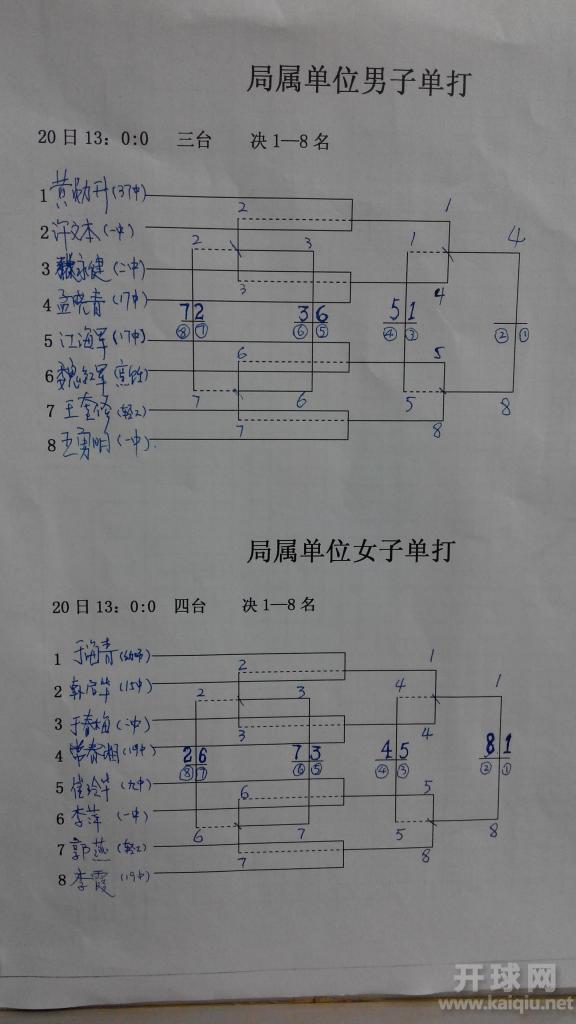 局属单位男子单打
20日13：0:0 三台 决1—8名
1 黄勋升（37中）
2 许文本（一中）
3 永健（二中）
4 孟晓青（17中）
5 江海军（17中）
6 魏红军
7 王奎修（轻工）
8 王勇明（一中）
2 1
2 3 1 4
3 4
7 2 3 6 5 1
⑧ ⑦ ⑥ ⑤ ④ ③ ② ①
6 5
7 6 5 8
7 8
局属单位女子单打
20日13：0:0 四台 决1—8名
1 于海青（幼师）
2 韩启华（15中）
3 于春梅（二中）
4 常春湘（19中）
5 崔玲华（九中）
6 李萍（一中）
7 郭燕（轻工）
8 李霞（19中）
2 1
2 3 4 1
3 4
2 6 7 3 4 5 8 1
⑧ ⑦ ⑥ ⑤ ④ ③ ② ①
6 5
6 7 5 8
7 8
开球网
www.kaiqiu.net